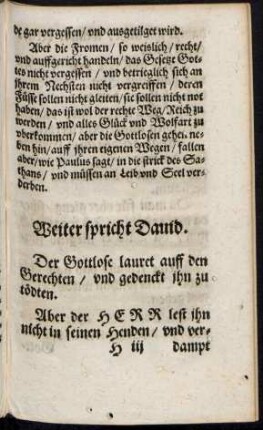 de gar vergessen / vnd ausgetilget wird.
Aber die Fromen / so weislich / recht /
vnd auffgericht handeln / das Gesetz Got-
tes nicht vergessen / vnd betrieglich sich an
jhrem Nechsten nicht vergreiffen / deren
Füsse sollen nicht gleiten / sie sollen nicht not
haben / das ist wol der rechte Weg / Reich zu
werden / vnd alles Glück vnd Wolfart zu
vberkommen / aber die Gottlosen gehen ne-
ben hin / auff jhren eigenen Wegen / fallen
aber / wie Paulus sagt / in die strick des Sa-
thans / vnd müssen an Leib vnd Seel ver-
derben.
Weiter spricht Dauid.
Der Gottlose lauret auff den
Gerechten / vnd gedenckt jhn zu
tödten.
Aber der HERR lest jhn
nicht in seinen Henden / vnd ver-
H iij dampt